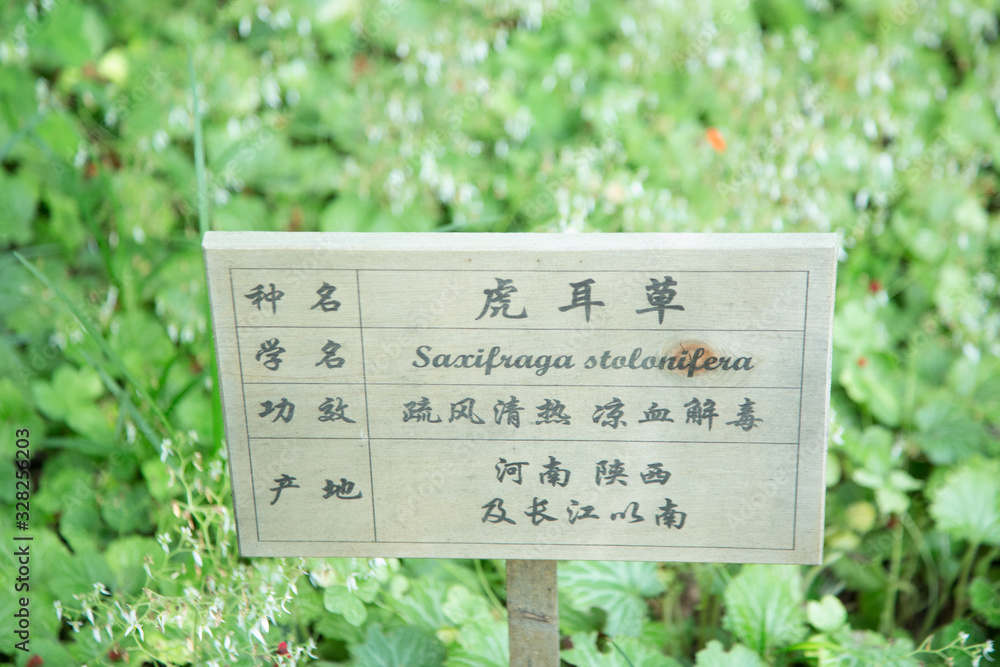 种名 虎耳草
学名 Saxifraga stolonifera
功效 疏风清热 凉血解毒
产地 河南 陕西
及长江以南
Adobe Stock | #328256203